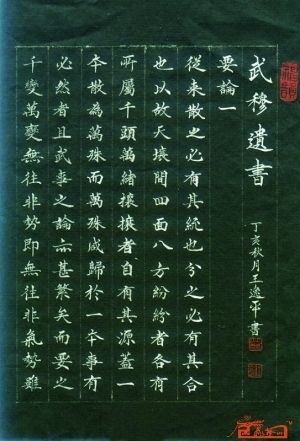 武穆遺書
丁亥秋月王逸平書
要論一
從來散之必有其統也分之必有其合
也以故天壤間四面八方紛紛者各有
所屬千頭萬緒攘攘者自有其源蓋一
本散為萬殊而萬殊咸歸於一本事有
必然者且武事之論亦甚繁矣而要之
千變萬變無往非勢即無往非氣勢雖